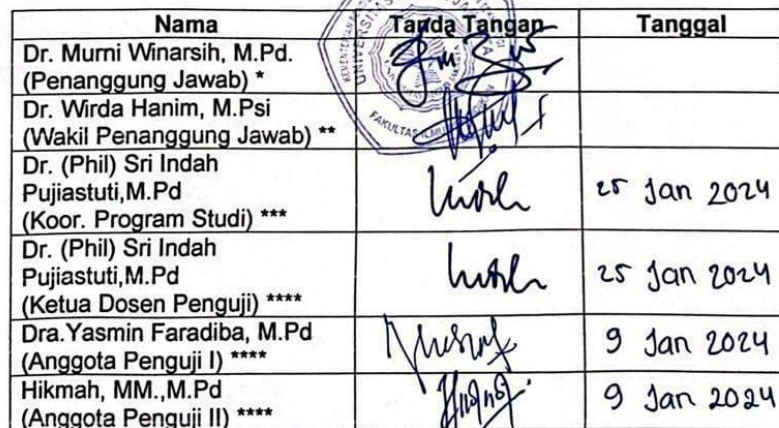 Nama Tanda Tangan Tanggal
Dr. Murni Winarsih, M.Pd.
(Penanggung Jawab) *
Dr. Wirda Hanim, M.Psi
(Wakil Penanggung Jawab) **
FAKULTAS ILMU
Dr. (Phil) Sri Indah
Pujiastuti,M.Pd
(Koor. Program Studi) ***
25 Jan 2024
Dr. (Phil) Sri Indah
Pujiastuti,M.Pd
(Ketua Dosen Penguji) ****
25 Jan 2024
Dra.Yasmin Faradiba, M.Pd
(Anggota Penguji I) ****
9 Jan 2024
Hikmah, MM.,M.Pd
(Anggota Penguji II) ****
9 Jan 2024